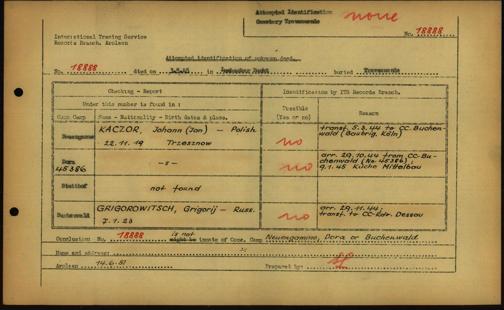 Attempted Identification
Cemetery Travemuende
none
International Tracing Service
Records Branch, Arolsen
No. 18888
Attempted identification of unknown dead.
No. 18888 died on in buried Travemuende
Checking - Report
Identification by ITS Records Branch.
Under this number is found in :
Possible (Yes or no)
Reason
Conc Camp
Name - Nationality - Birth dates & place.
Neuengamme
KACZOR, Johann (Jan) - Polish
22.11.19 Trzesznow
no
transf. 5.3.44 to CC. Buchenwald (Baubrig. Köln)
Dora
45386
- " -
no
arr. 29.10.44 from CC-Buchenwald (No 45386);
9.1.45 Küche Mittelbau
Stutthof
not found
Buchenwald
GRIGOROWITSCH, Grigorij - Russ.
7.1.23
no
arr. 29.11.44;
transf. to CC-Kdr. Dessau
Conclusion No. 18888 is not might be inmate of Conc. Camp Neuengamme, Dora or Buchenwald
Name and address:
Arolsen 14.6.51
Prepared by: